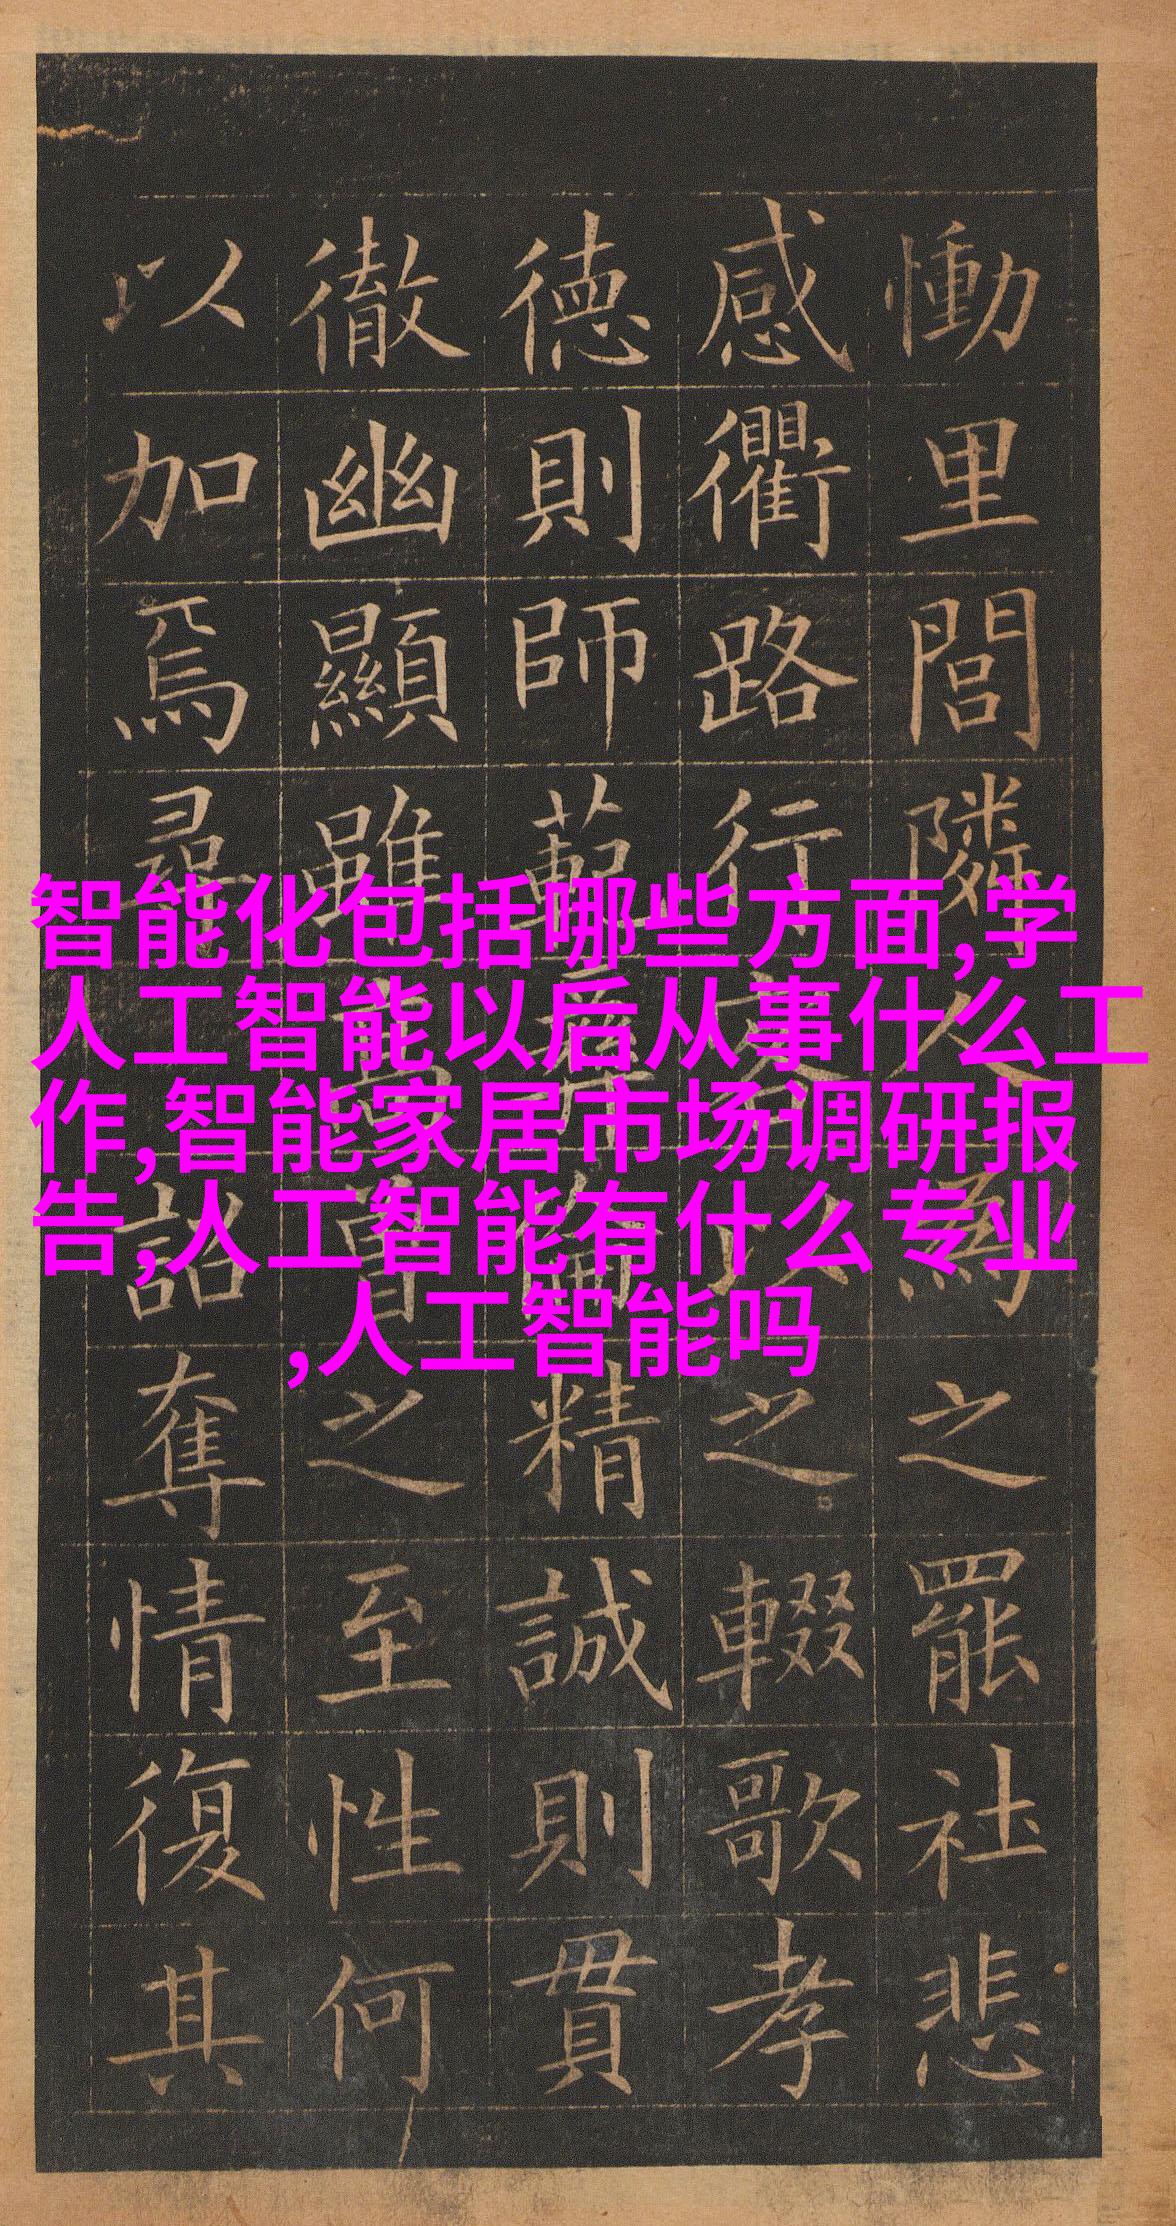 慟里閭隣人為之罷社悲
感衢路行客以之輟歌孝
德則師範彝倫精誠則貫
徹幽顯雖高曾之至性何
以加焉尋詔奪情復其
智能化包括哪些方面,学
人工智能以后从事什么工
作,智能家居市场调研报
告,人工智能有什么专业
,人工智能吗